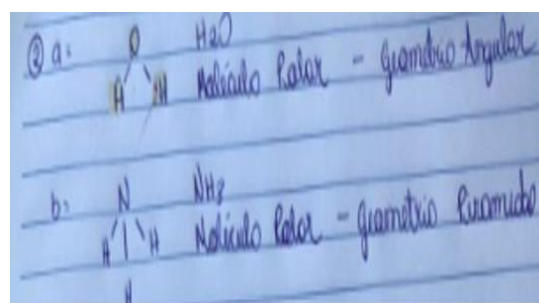 ② a. O H2O
H H Molécula Polar - Geometria Angular
b. N NH3
H H Molécula Polar - Geometria Piramida
H